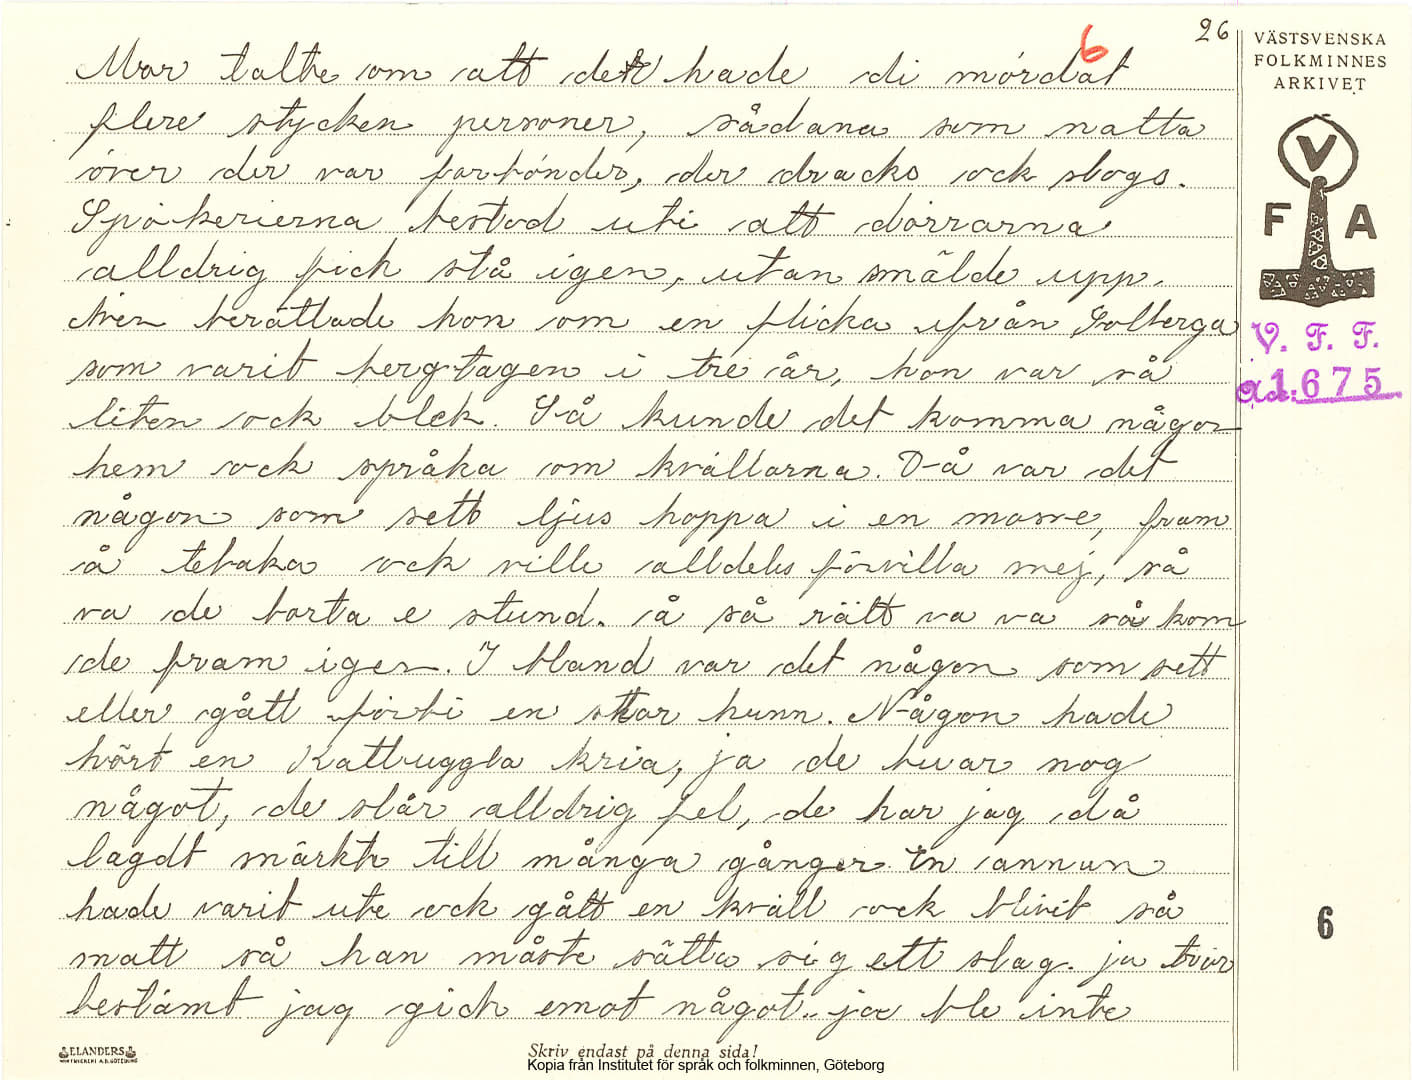 26
6
VÄSTSVENSKA
FOLKMINNES
ARKIVET
V
F A
V. F. F.
ad: 1675
Mor talte om att der hade di mördat
flere stycken personer, sådana som natta
över der var farbönder, der dracks ock slogs.
Spökerierna bestod uti att dörrarna
alldrig fich stå igen, utan smälde upp.
Även berättade hon om en flicka ifrån Solberga
som varit bergtagen i tre år, hon var så
liten ock blek. Så kunde det komma någon
hem ock språka om kvällarna. Då var det
någon som sett ljus hoppa i en mosse, fram
å tebaka ock ville alldels förvilla mej, så
va de borta e stund. å så rätt va va så kom
de fram igen. I bland var det någon som sett
eller gått förbi en stor hunn. Någon hade
hört en Kattuggla kria, ja de buar nog
något, de slår alldrig fel, de har jag då
lagdt märkte till många gånger. En annun
hade varit ute ock gått en kväll ock blivit så
matt så han måste sätta sig ett slag. ja tror
bestämt jag gick emot något. ja ble inte
6
ELANDERS
Skriv endast på denna sida!
Kopia från Institutet för språk och folkminnen, Göteborg